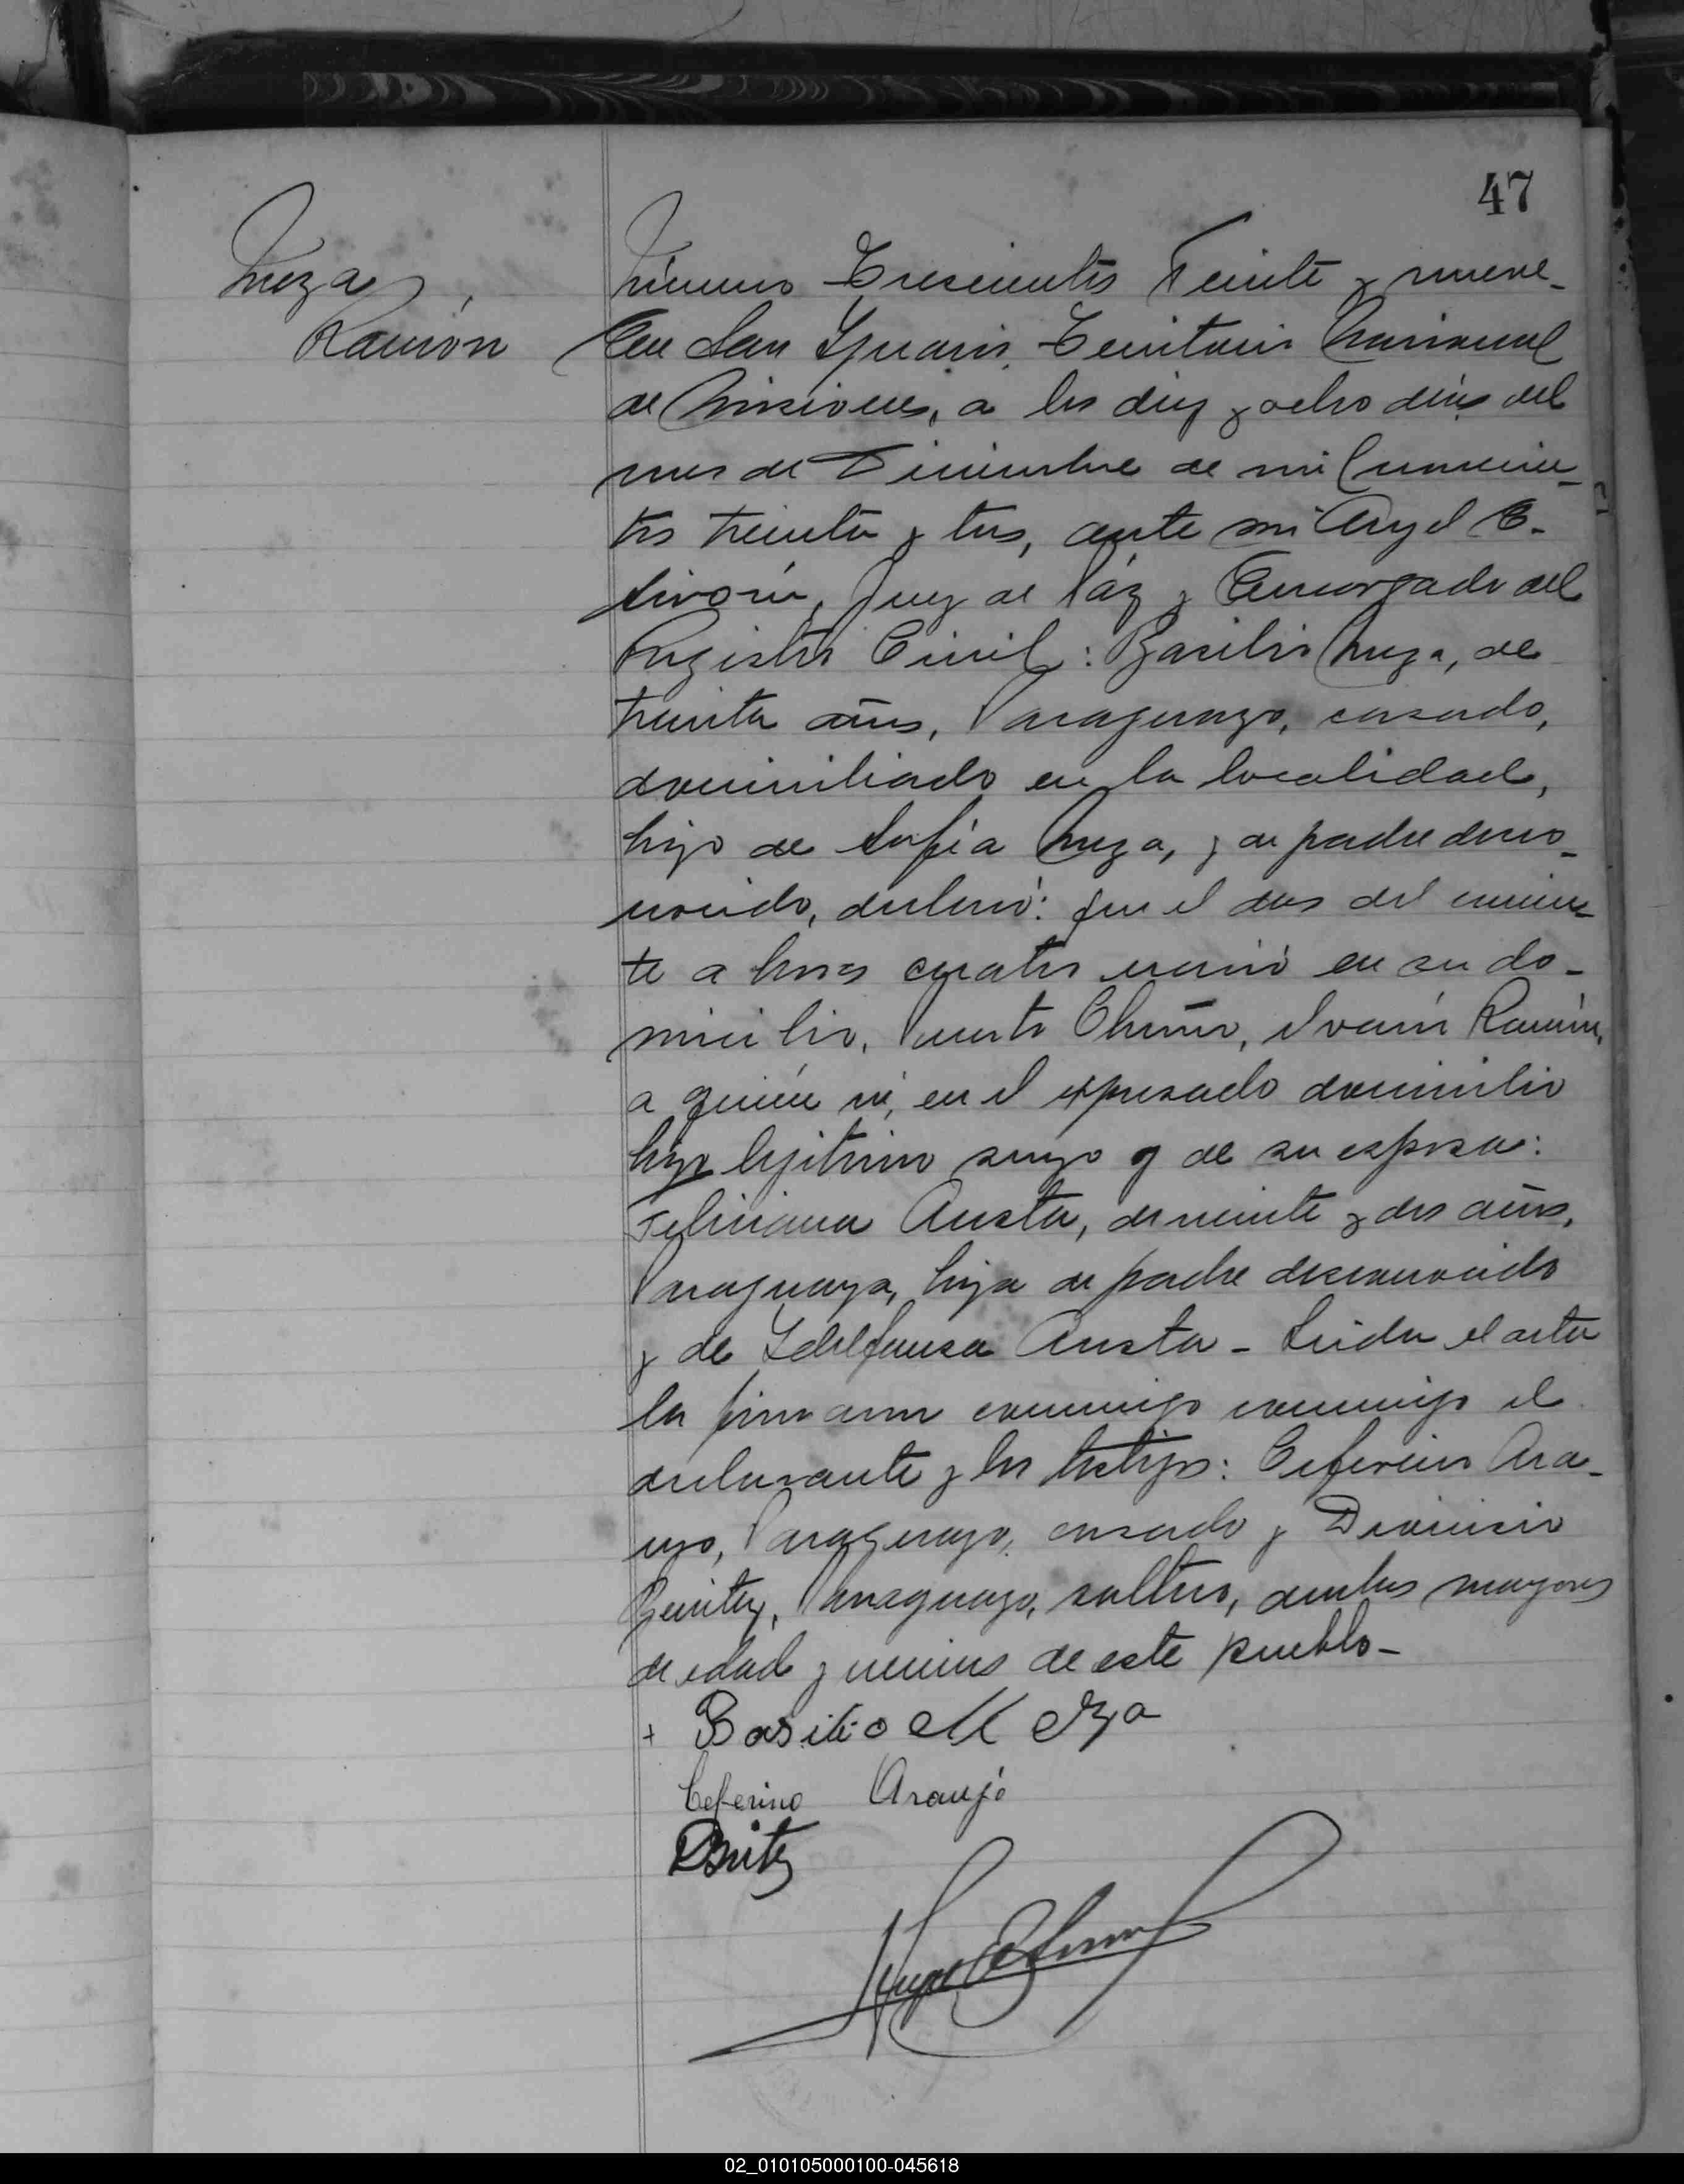 47
Meza,
Ramón
Número Trescientos Veinte y nueve_
En San Ygnacio, Territorio Nacional
de Misiones, a los diez y ocho dias del
mes de Diciembre de mil novecien_
tos treinta y tres, ante mi Angel E.
Juez de Páz y Encargado del
Registro Civil: Basilio Meza, de
treinta años, Paraguayo, casado,
domiciliado en la localidad,
hijo de Sofia Meza, y de padre desco_
nocido, declaró: que el dos del corrien_
te a horas cuatro nació en su do_
micilio, Puerto Chuño, el varón Ramón,
a quién ví, en el expresado domicilio
hijo lejitimo suyo y de su esposa:
Feliciana Acosta, de veinte y dos años,
Paraguaya, hija de padre desconocido
y de Ydelfonsa Acosta - Leida el acta
la firmaron conmigo conmigo el
declarante y los testigos: Ceferino Ara_
ujo, Paraguayo, casado y Dionicio
Benitez, Paraguayo, soltero, ambos mayores
de edad y vecinos de este pueblo-
+ Basilio Meza
Ceferino Araujo
DBnitz
02_010105000100-045618